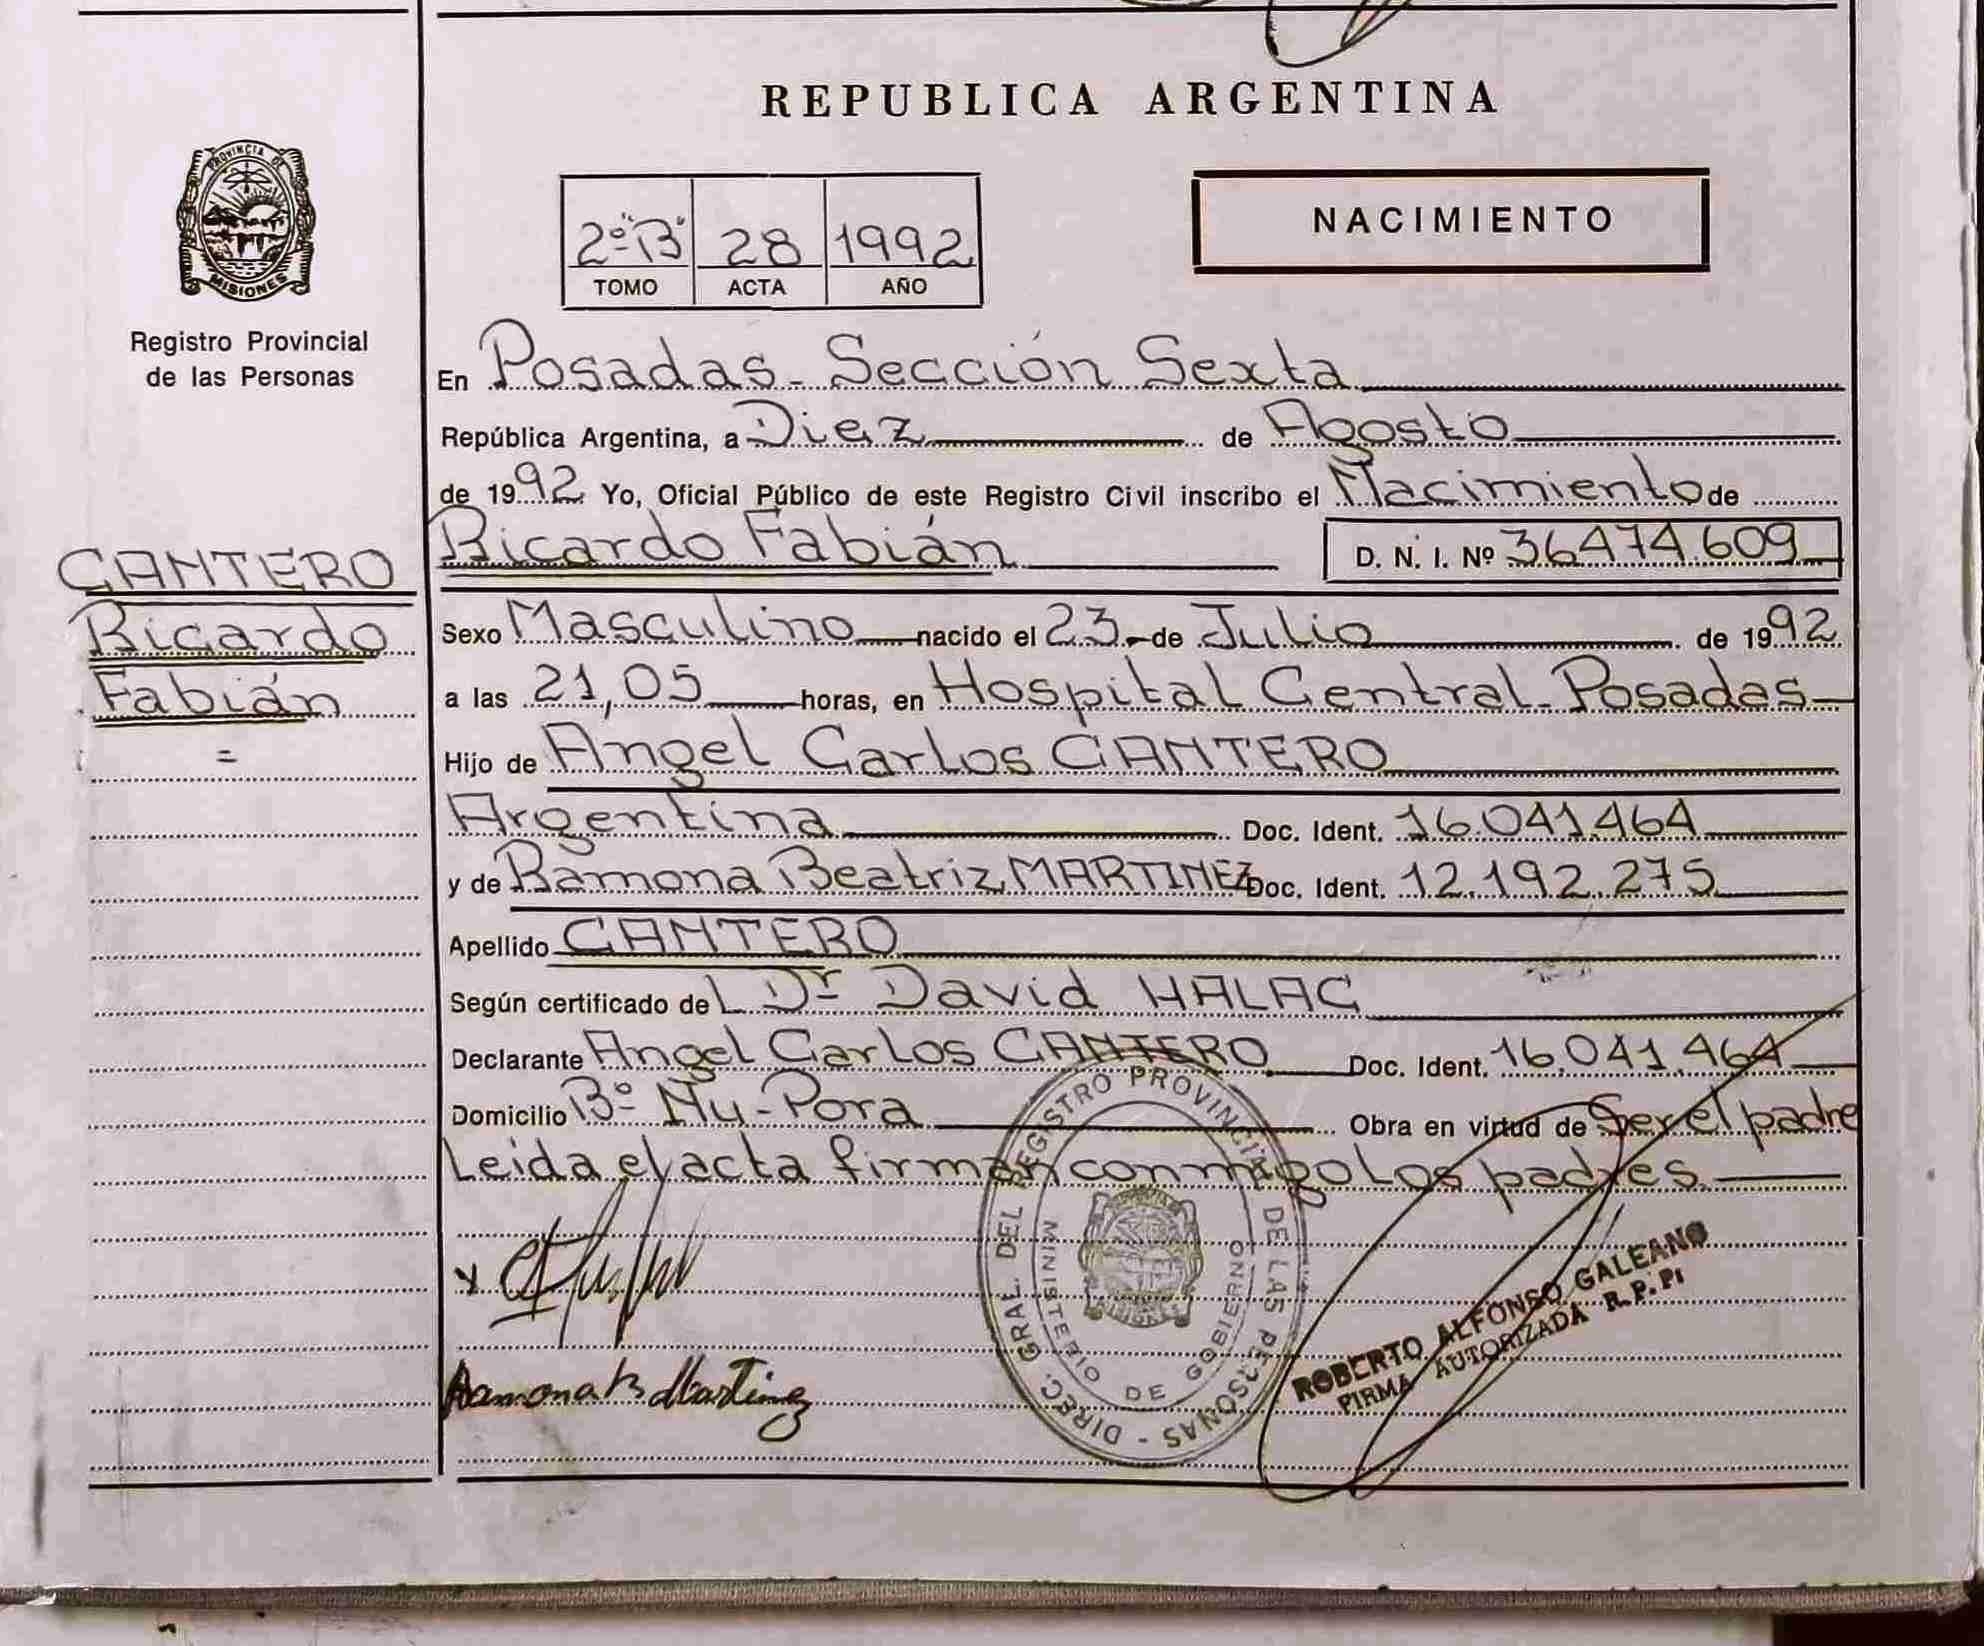 REPUBLICA ARGENTINA
PROVINCIA DE
MISIONES
Registro Provincial
de las Personas
2º "B" 28 1992
TOMO ACTA AÑO
NACIMIENTO
En Posadas - Sección Sexta
República Argentina, a Diez de Agosto
de 1992 Yo, Oficial Público de este Registro Civil inscribo el Nacimiento de
Ricardo Fabián D. N. I. Nº 36474.609
CANTERO
Ricardo
Fabián
=
Sexo Masculino nacido el 23 - de Julio de 1992
a las 21,05 horas, en Hospital Central - Posadas
Hijo de Angel Carlos CANTERO
Argentina Doc. Ident. 16.041.464
y de Ramona Beatriz MARTINEZ Doc. Ident. 12.192.275
Apellido CANTERO
Según certificado del Dr David HALAC
Declarante Angel Carlos CANTERO Doc. Ident. 16.041.464
Domicilio Bº Ñu-Pora Obra en virtud de Ser el padre
Leida el acta firman conmigo los padres
DIREC. GRAL. DEL REGISTRO PROVINCIAL DE LAS PERSONAS -
MINISTERIO DE GOBIERNO
MISIONES
ROBERTO ALFONSO GALEANO
FIRMA AUTORIZADA R. P. P.
Ramona B Martinez